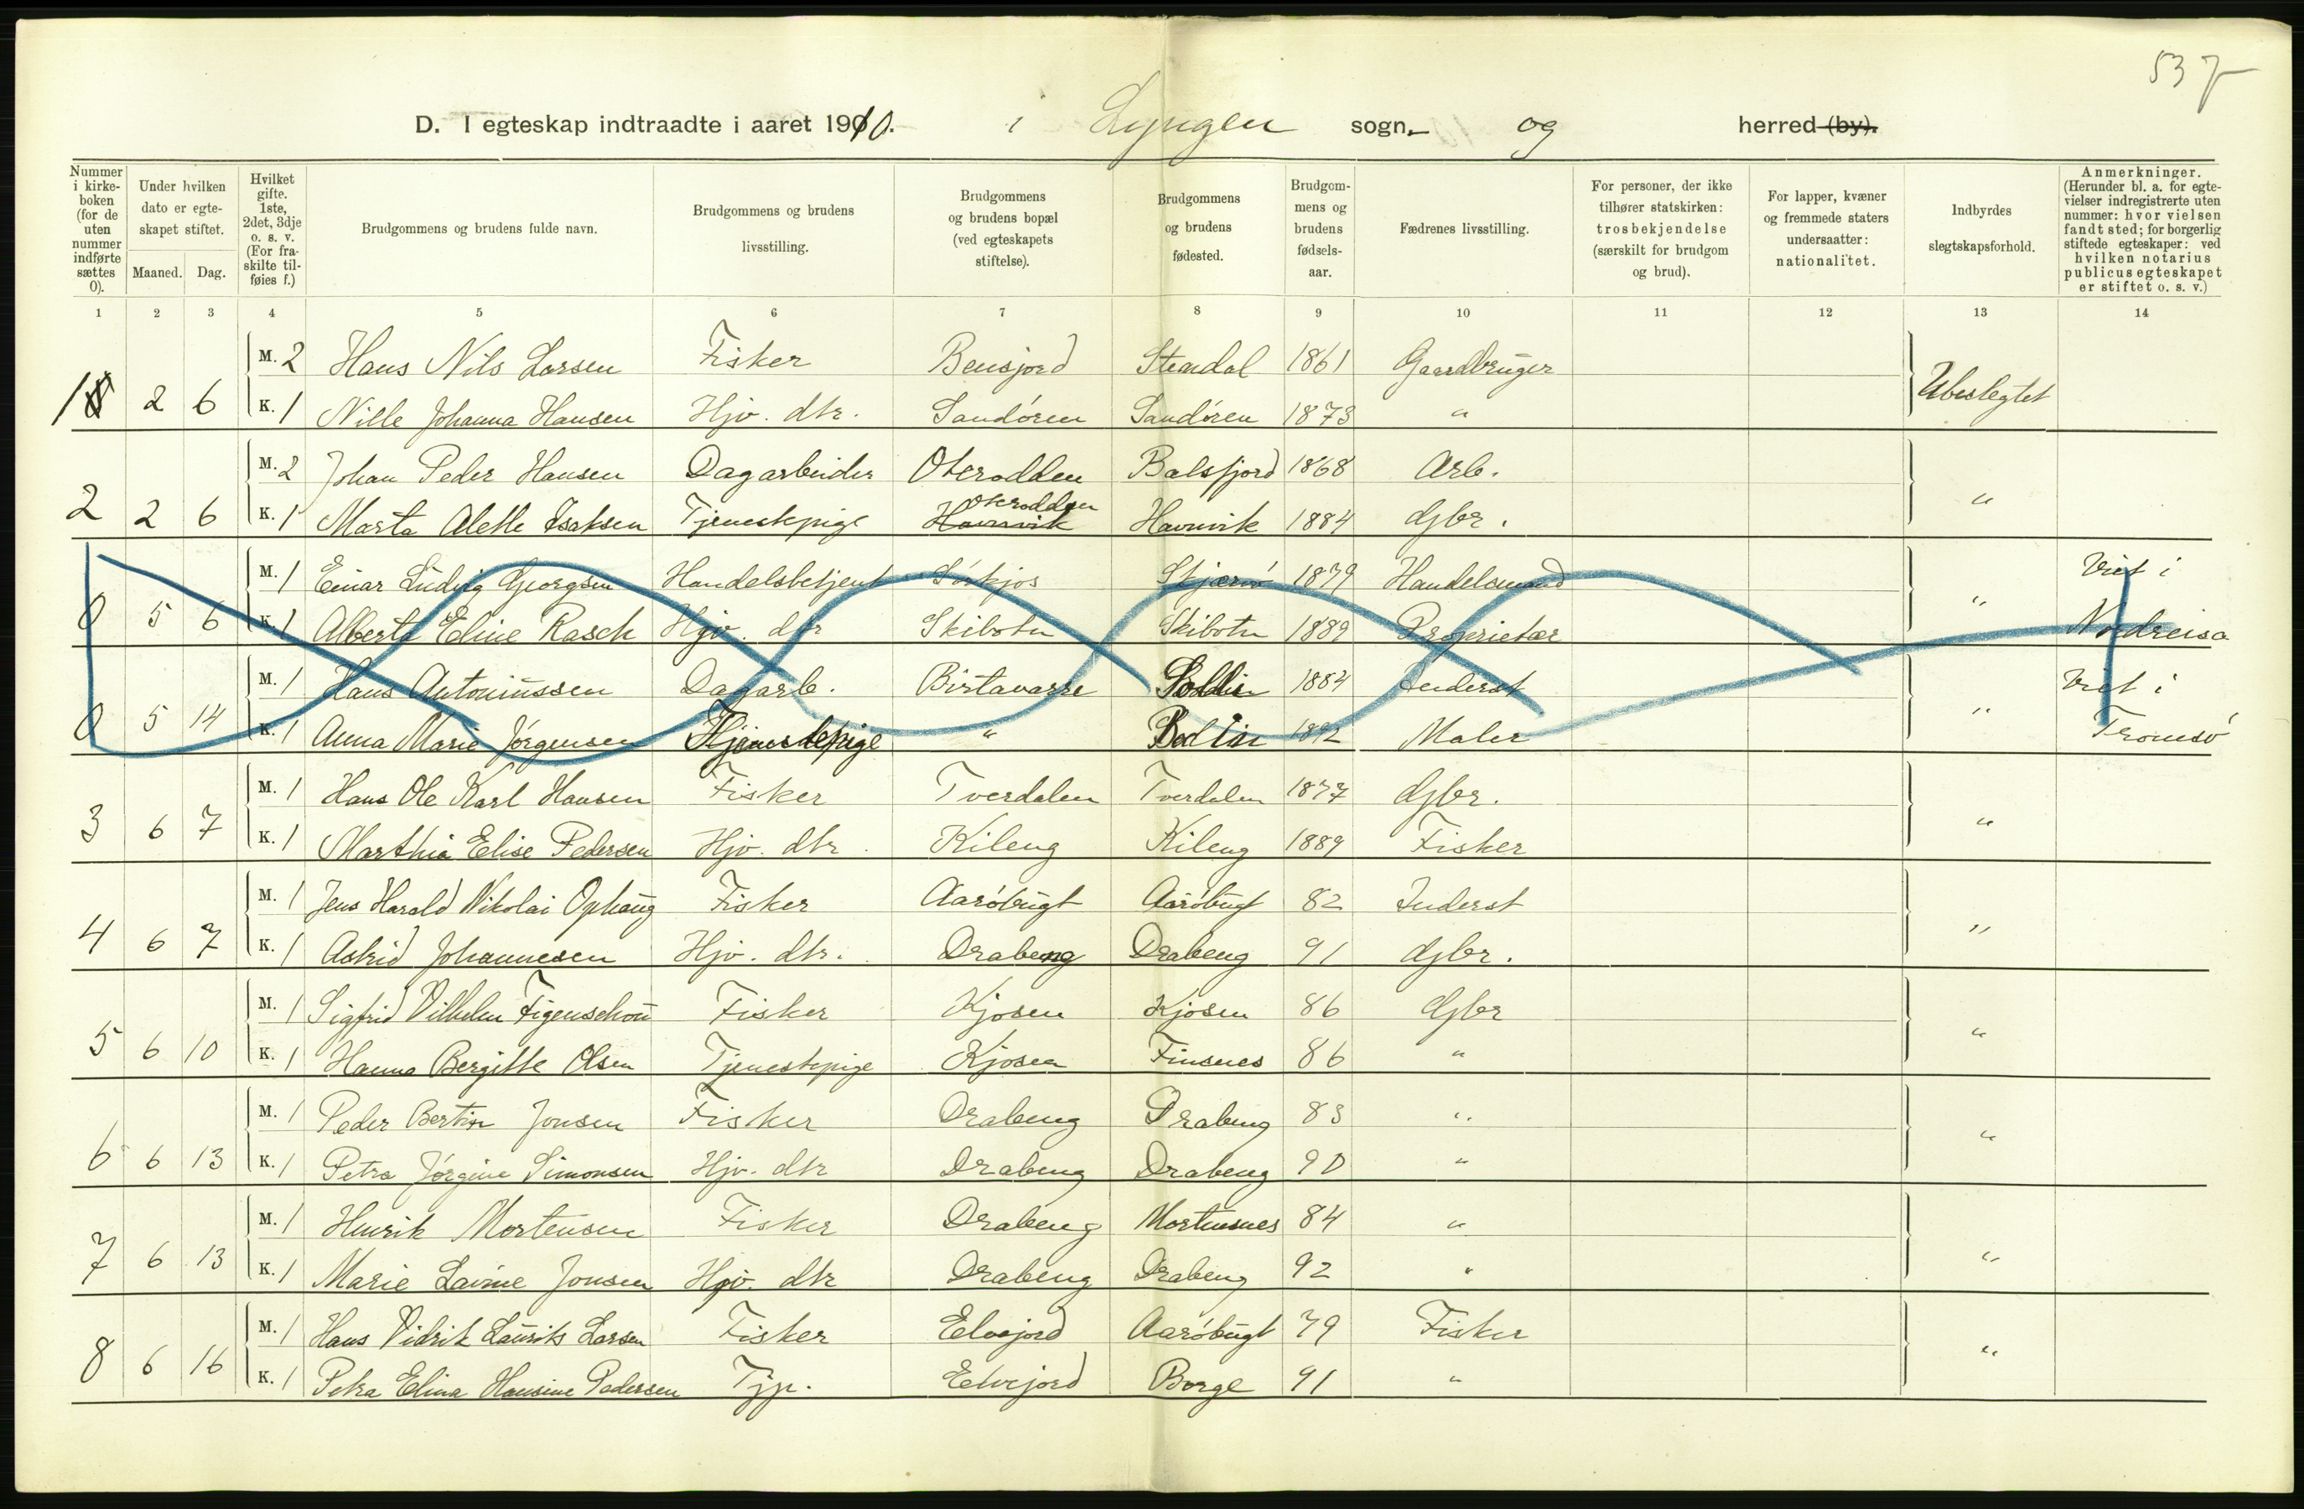 537
D. I egteskap indtraadte i aaret 1910. i Lyngen sogn og herred (by).
Nummer i kirkeboken (for de uten nummer indførte sættes 0).
Under hvilken dato er egteskapet stiftet.
Maaned. Dag.
Hvilket gifte. 1ste, 2det, 3dje o. s. v. (For fraskilte tilføies f.)
Brudgommens og brudens fulde navn.
Brudgommens og brudens livsstilling.
Brudgommens og brudens bopæl (ved egteskapets stiftelse).
Brudgommens og brudens fødested.
Brudgommens og brudens fødselsaar.
Fædrenes livsstilling.
For personer, der ikke tilhører statskirken: trosbekjendelse (særskilt for brudgom og brud).
For lapper, kvæner og fremmede staters undersaatter: nationalitet.
Indbyrdes slegtskapsforhold.
Anmerkninger. (Herunder bl. a. for egtevielser indregistrerte uten nummer: hvor vielsen fandt sted; for borgerlig stiftede egteskaper: ved hvilken notarius publicus egteskapet er stiftet o. s. v.)
1 2 3 4 5 6 7 8 9 10 11 12 13 14
M. 2 Hans Nils Larsen Fisker Bensjord Stendal 1861 Gaardbruger
1 2 6 K. 1 Nille Johanna Hansen Hjv. dtr. Sandøren Sandøren 1873 " Ubeslegtet
M. 2 Johan Peder Hansen Dagarbeider Oterodden Balsfjord 1868 Arb.
2 2 6 K. 1 Marta Alette Isaksen Tjenestepige Havnvik Oterodden Havnvik 1884 Gbr. "
M. 1 Einar Ludvig Georgsen Handelsbetjent Sørkjos Skjærvø 1879 Handelsmand Viet i
0 5 6 K. 1 Alberta Eline Rasch Hjv. dtr Skibotn Skibotn 1889 Proprietær " Nordreisa
M. 1 Hans Antoniussen Dagarb. Birtavarre 1884 Inderst Viet i
0 5 14 K. 1 Anna Marie Jørgensen Tjenestepige " 1892 Maler " Tromsø
M. 1 Hans Ole Karl Hansen Fisker Tverdalen Tverdalen 1877 Gbr.
3 6 7 K. 1 Marthia Elise Pedersen Hjv. dtr. Kileng Kileng 1889 Fisker "
M. 1 Jens Harald Nikolai Ophaug Fisker Aarøbugt Aarøbugt 82 Inderst
4 6 7 K. 1 Astrid Johannesen Hjv. dtr. Drabeng Drabeng 91 Gbr. "
M. 1 Sigfrid Vilhelm Figenschou Fisker Kjosen Kjosen 86 Gbr
5 6 10 K. 1 Hanna Bergitte Olsen Tjenestepige Kjosen Finsnes 86 " "
M. 1 Peder Bertin Jonsen Fisker Drabeng Drabeng 83 "
6 6 13 K. 1 Petra Jørgine Simonsen Hjv. dtr Drabeng Drabeng 90 " "
M. 1 Henrik Mortensen Fisker Drabeng Mortensnes 84 "
7 6 13 K. 1 Marie Lavine Jonsen Hjv. dtr Drabeng Drabeng 92 " "
M. 1 Hans Vidrik Laurits Larsen Fisker Elvejord Aarøbugt 79 Fisker
8 6 16 K. 1 Petra Elina Hansine Pedersen Tjp. Elvejord Borge 91 " "